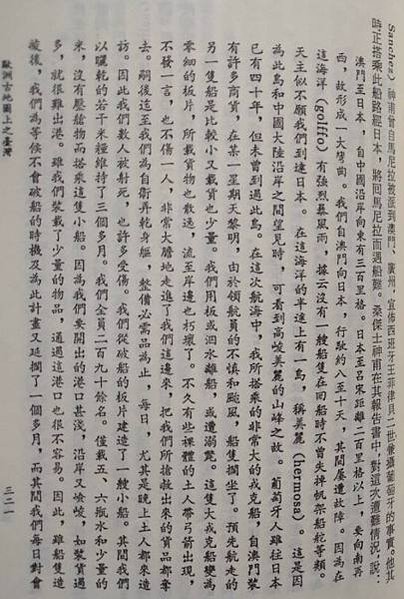 Sanchez) 神甫曾自馬尼拉被派到澳門、廣州，宣佈西班牙王菲律貝二世兼攝葡萄牙的事實。他其
時正搭乘此船路經日本，將回馬尼拉而遇船難。桑傑士神甫在其報告書中，對這次遭難情況，說：
澳門至日本，自中國沿岸向東有三百里格。日本至呂宋距離二百里格以上，要向南再
西，故形成一大彎曲。我們自澳門向日本，行駛約八至十天，其間屢遭故障。因為在
這海洋（golffo）有強烈暴風雨，據云沒有一艘船隻在回船時不曾失掉帆架船舵等類。
天主似不願我們到達日本。在這海洋的半途上有一島，稱美麗（hermosa）。這是因
為此島和中國大陸沿岸之間望見時，可看到高峻美麗的山峰之故。葡萄牙人雖往日本
已有四十年，但未曾到過此島。在這次航海中，我所搭乘的非常大的戎克船，自澳門裝
有許多商貨，在某一星期天黎明，由於領航員的不慎和颱風，船隻擱坐了。預先航走的
另一隻船是比較小又載貨也少量。我們用板或泅水離船，或遭溺斃。這隻大戎克船變為
零細的板片，所載貨物也散逸，流至岸邊也朽壞了。不久有些裸體的土人帶弓箭出現，
不發一言，也不傷一人，非常大膽地走進了我們這邊來，把我們所搶救出來的貨品都奪
去。嗣後迄至我們為自衛弄乾身軀，整備必需品為止，每日，尤其是晚上土人都來造
訪。因此我們數人被射死，也許多受傷。我們從破船的板片建造了一艘小船。其間我們
以曬乾的若干米糧維持了三個多月。我們全員二百九十餘名。僅載五、六瓶水和少量的
米，沒有壓艙物而搭乘這隻小船。因為我們要開出的港口甚淺，沿岸又嶮峻，如裝貨過
多，就很難出港。雖我們裝載了少量的物品，通過這港口也很不容易。因此，雖船隻造
竣後，我們為等候不會破船的時機及為此計畫又延擱了一個多月，而其間我們每日對會
歐洲古地圖上之臺灣
三二一